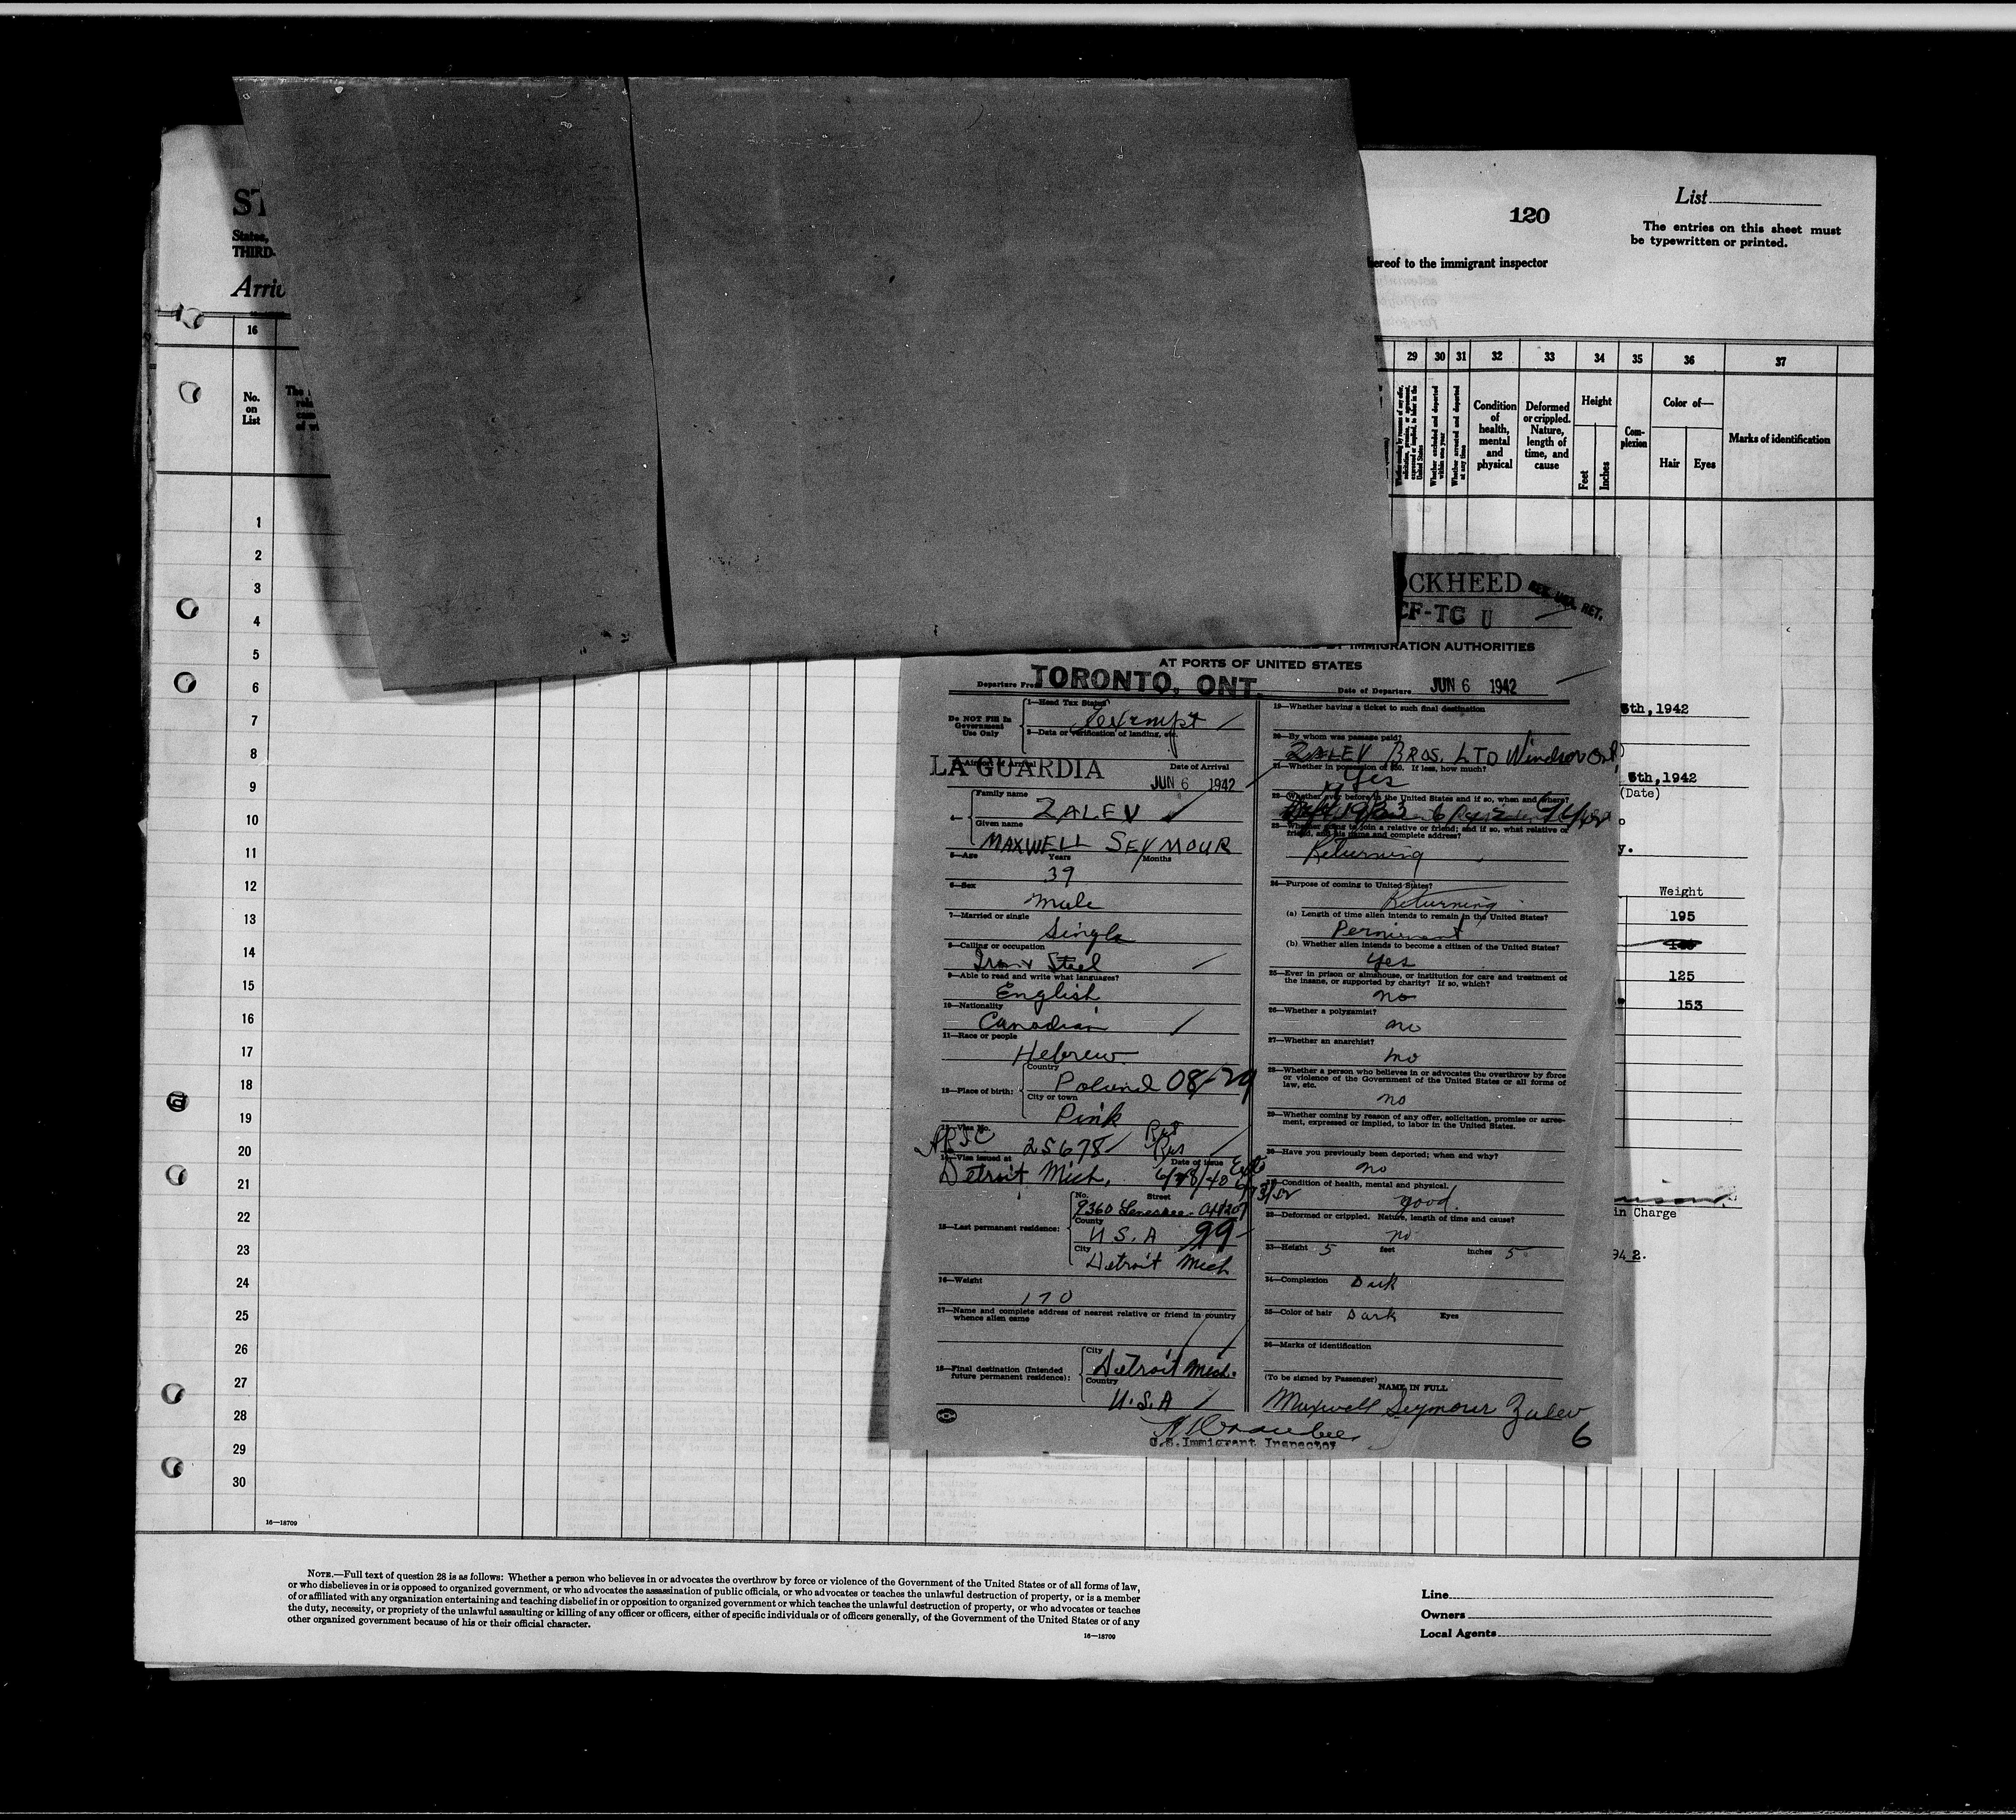 List
120
The entries on this sheet must
be typewritten or printed.
ereof to the immigrant inspector
States,
THIRD-
16
29 30 31 32 33 34 35 36 37
No.
on
List
Whether excluded and deported within one year
Whether arrested and deported at any time
Condition
of
health,
mental
and
physical
Deformed
or crippled.
Nature,
length of
time, and
cause
Height
Feet
Inches
Com-
plexion
Color of—
Hair
Eyes
Marks of identification
1
2
3
4
5
6
7
8
9
10
11
12
13
14
15
16
17
18
19
20
21
22
23
24
25
26
27
28
29
30
16—18709
OCKHEED
CF-TC U
IMMIGRATION AUTHORITIES
AT PORTS OF UNITED STATES
TORONTO, ONT.
Date of Departure JUN 6 1942
Do NOT Fill In
Government
Use Only
1—Head Tax Status
Exempt
2—Date or verification of landing, etc.
LA GUARDIA
Date of Arrival
JUN 6 1942
Family name
ZALEV
Given name
MAXWELL SEYMOUR
5—Age
Years
Months
39
6—Sex
male
7—Married or single
Single
8—Calling or occupation
Iron & Steel
9—Able to read and write what languages?
English
10—Nationality
Canadian
11—Race or people
Hebrew
12—Place of birth:
Country
Poland 08-29
City or town
Pink
13—Visa No.
25678
14—Visa issued at
Date of issue
Detroit Mich.
15—Last permanent residence:
No.
Street
Country
U.S.A 99
City
Detroit Mich
16—Weight
170
17—Name and complete address of nearest relative or friend in country
whence alien came
18—Final destination (Intended
future permanent residence):
City
Detroit Mich.
Country
U.S.A
19—Whether having a ticket to such final destination
20—By whom was passage paid?
ZALEV BROS. LTD Windsor Ont
21—Whether in possession of $50. If less, how much?
Yes
22—Whether ever before in the United States and if so, when and where?
23—Whether going to join a relative or friend; and if so, what relative or
friend, and his name and complete address?
Returning
24—Purpose of coming to United States?
Returning
(a) Length of time alien intends to remain in the United States?
Perminant
(b) Whether alien intends to become a citizen of the United States?
yes
25—Ever in prison or almshouse, or institution for care and treatment of
the insane, or supported by charity? If so, which?
no
26—Whether a polygamist?
no
27—Whether an anarchist?
no
28—Whether a person who believes in or advocates the overthrow by force
or violence of the Government of the United States or all forms of
law, etc.
no
29—Whether coming by reason of any offer, solicitation, promise or agree-
ment, expressed or implied, to labor in the United States.
30—Have you previously been deported; when and why?
no
31—Condition of health, mental and physical.
good.
32—Deformed or crippled. Nature, length of time and cause?
no
33—Height 5 feet inches 5
34—Complexion Dark
35—Color of hair Dark Eyes
36—Marks of identification
(To be signed by Passenger)
NAME IN FULL
Maxwell Seymour Zalev
U.S. Immigrant Inspector
6
6th, 1942
6th, 1942
(Date)
Weight
195
125
153
in Charge
942.
NOTE.—Full text of question 28 is as follows: Whether a person who believes in or advocates the overthrow by force or violence of the Government of the United States or of all forms of law,
or who disbelieves in or is opposed to organized government, or who advocates the assassination of public officials, or who advocates or teaches the unlawful destruction of property, or is a member
of or affiliated with any organization entertaining and teaching disbelief in or opposition to organized government or which teaches the unlawful destruction of property, or who advocates or teaches
the duty, necessity, or propriety of the unlawful assaulting or killing of any officer or officers, either of specific individuals or of officers generally, of the Government of the United States or of any
other organized government because of his or their official character.
16—18709
Line
Owners
Local Agents